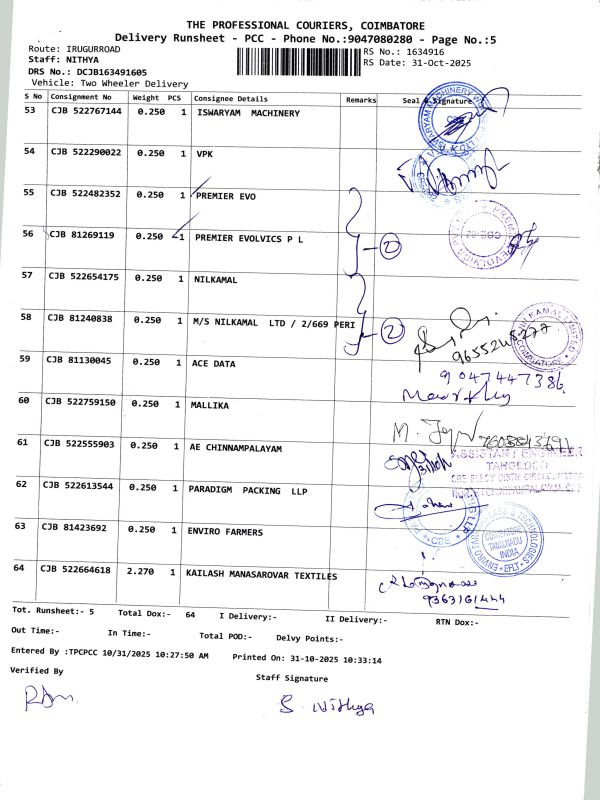 THE PROFESSIONAL COURIERS, COIMBATORE
Delivery Runsheet - PCC - Phone No.:9047080280 - Page No.:5
Route: IRUGURROAD RS No.: 1634916
Staff: NITHYA RS Date: 31-Oct-2025
DRS No.: DCJB163491605
Vehicle: Two Wheeler Delivery
S No Consignment No Weight PCS Consignee Details Remarks Seal & Signature
53 CJB 522767144 0.250 1 ISWARYAM MACHINERY
54 CJB 522290022 0.250 1 VPK
55 CJB 522482352 0.250 1 PREMIER EVO
56 CJB 81269119 0.250 1 PREMIER EVOLVICS P L 2
57 CJB 522654175 0.250 1 NILKAMAL
58 CJB 81240838 0.250 1 M/S NILKAMAL LTD / 2/669 PERI 2
NILKAMAL LIMITED
COIMBATORE
59 CJB 81130045 0.250 1 ACE DATA
9047447386
60 CJB 522759150 0.250 1 MALLIKA
61 CJB 522555903 0.250 1 AE CHINNAMPALAYAM
ASSISTANT ENGINEER
TANGEDCO
62 CJB 522613544 0.250 1 PARADIGM PACKING LLP
63 CJB 81423692 0.250 1 ENVIRO FARMERS
COIMBATORE
TAMILNADU
INDIA
64 CJB 522664618 2.270 1 KAILASH MANASAROVAR TEXTILES
9363161444
Tot. Runsheet:- 5 Total Dox:- 64 I Delivery:- II Delivery:- RTN Dox:-
Out Time:- In Time:- Total POD:- Delvy Points:-
Entered By :TPCPCC 10/31/2025 10:27:50 AM Printed On: 31-10-2025 10:33:14
Verified By Staff Signature
S. Nithya